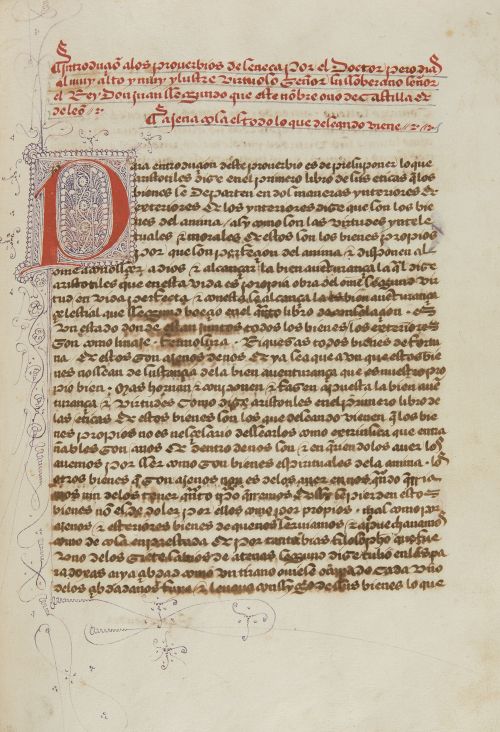 Introduçion alos prouerbios de seneca por el Doctor pero dias
al muy alto y muy yllustre virtuoso señor su soberano señor
el Rey Don juan segundo que este nonbre ouo de castilla &
de leon
Ajena cosa es todo lo que deseando viene
Para introduçion deste prouerbio es de presuponer lo que
aristotiles dize en el primero libro de sus eticas q̃ los
bienes se departen en dos maneras ynteriores &
exteriores & los ynteriores dize que son los bie
nes del anima / asy como son las virtudes yntele
tuales & morales & estos son los bienes propios
por que son perfeçion del anima & disponen al
ome a conosçer a dios & alcançar la bien auenturança q̃ al dize
aristotiles que en esta vida es propia obra del ome segund vir
tud en vida perfecta & con esto se alcança la bien auenturança
çelestial que segund boeçio en el libro de consolaçion
Un estado donde estan juntos todos los bienes los exteriores
son como linaje fermosura Riquezas todos bienes de fortu
na & estos son ajenos de nos & ya sea que avn que estos bie
nes no sean de sustançia dela bien auenturança que es nuestro pro
pio bien mas hornan & conponen & fazen apuesta la bien auen
turança & virtudes como dize aristotiles en el primero libro de
las eticas & estos bienes son los que deseando vienen q̃ los bie
nes propios no es nesçesario desearlos como extrinsica que entra
ñables son a nos & dentro de nos son & en queriendolos auer los
auemos por ser como son bienes espirituales dela anima los
otros bienes q̃ son ajenos non es delos auer
nos nin delos tener se pierden estos
bienes no el de doler por ellos como por propios mas como por
ajenos & exteriores bienes de que nos seruiamos &
como de cosa enprestada & por tanto bias filosofo que fue
uno delos siete sabios de atenas segund dize tulio enlas pa
radoxas su çibdad como un tirano ouiese cada uno
delos çibdadanos & leuaua consygo de sus bienes lo que